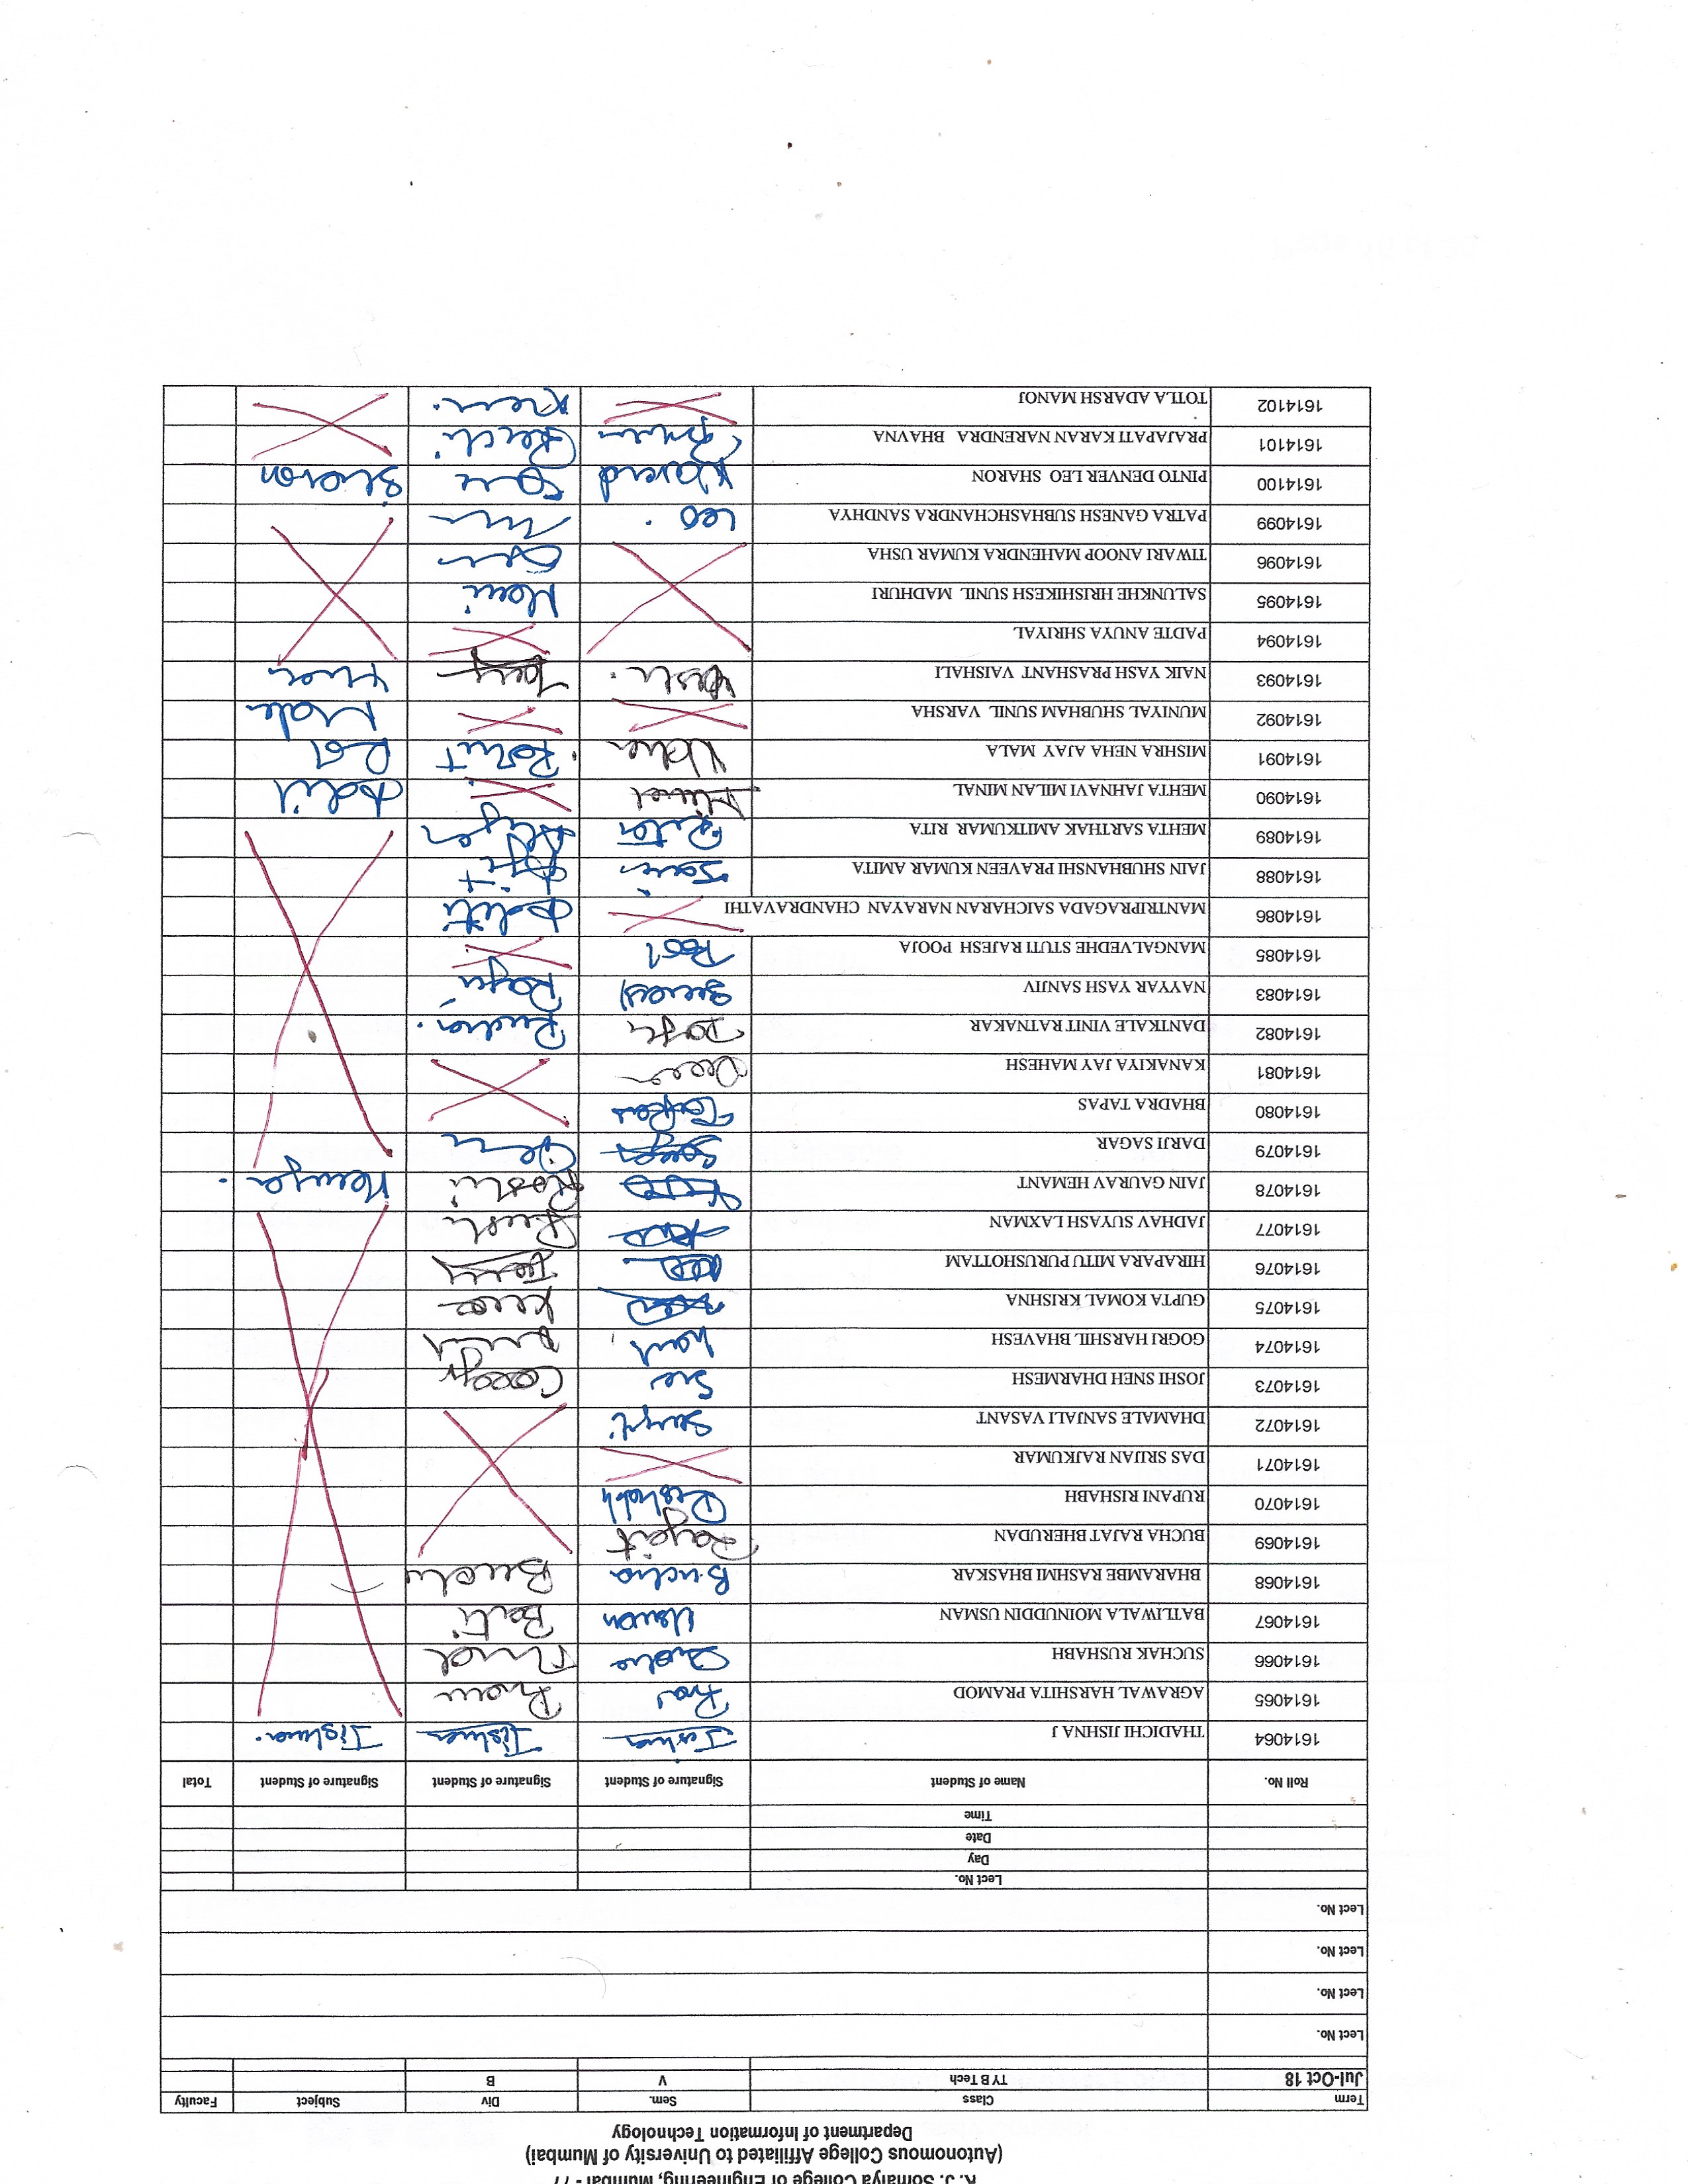 K. J. Somaiya College of Engineering, Mumbai - 77
(Autonomous College Affiliated to University of Mumbai)
Department of Information Technology
Term Class Sem. Div Subject Faculty
Jul-Oct 18 TY B Tech V B
Lect No.
Lect No.
Lect No.
Lect No.
Lect No.
Day
Date
Time
Roll No. Name of Student Signature of Student Signature of Student Signature of Student Total
1614064 THADICHI JISHNA J Jishna Jishna Jishna.
1614065 AGRAWAL HARSHITA PRAMOD
1614066 SUCHAK RUSHABH
1614067 BATLIWALA MOINUDDIN USMAN Usman Bati
1614068 BHARAMBE RASHMI BHASKAR Bucha
1614069 BUCHA RAJAT BHERUDAN Rajat
1614070 RUPANI RISHABH Rishabh
1614071 DAS SRIJAN RAJKUMAR
1614072 DHAMALE SANJALI VASANT
1614073 JOSHI SNEH DHARMESH
1614074 GOGRI HARSHIL BHAVESH
1614075 GUPTA KOMAL KRISHNA
1614076 HIRAPARA MITU PURUSHOTTAM
1614077 JADHAV SUYASH LAXMAN
1614078 JAIN GAURAV HEMANT
1614079 DARJI SAGAR
1614080 BHADRA TAPAS Tapas
1614081 KANAKIYA JAY MAHESH
1614082 DANTKALE VINIT RATNAKAR Rudra.
1614083 NAYYAR YASH SANJIV
1614085 MANGALVEDHE STUTI RAJESH POOJA
1614086 MANTRIPRAGADA SAICHARAN NARAYAN CHANDRAVATHI Aditi
1614088 JAIN SHUBHANSHI PRAVEEN KUMAR AMITA Ajit
1614089 MEHTA SARTHAK AMITKUMAR RITA Rita
1614090 MEHTA JAHNAVI MILAN MINAL Minal Adil
1614091 MISHRA NEHA AJAY MALA Rohit
1614092 MUNIYAL SHUBHAM SUNIL VARSHA
1614093 NAIK YASH PRASHANT VAISHALI Yash.
1614094 PADTE ANUYA SHRIYAL
1614095 SALUNKHE HRISHIKESH SUNIL MADHURI
1614096 TIWARI ANOOP MAHENDRA KUMAR USHA
1614099 PATRA GANESH SUBHASHCHANDRA SANDHYA Leo
1614100 PINTO DENVER LEO SHARON Sharon
1614101 PRAJAPATI KARAN NARENDRA BHAVNA
1614102 TOTLA ADARSH MANOJ